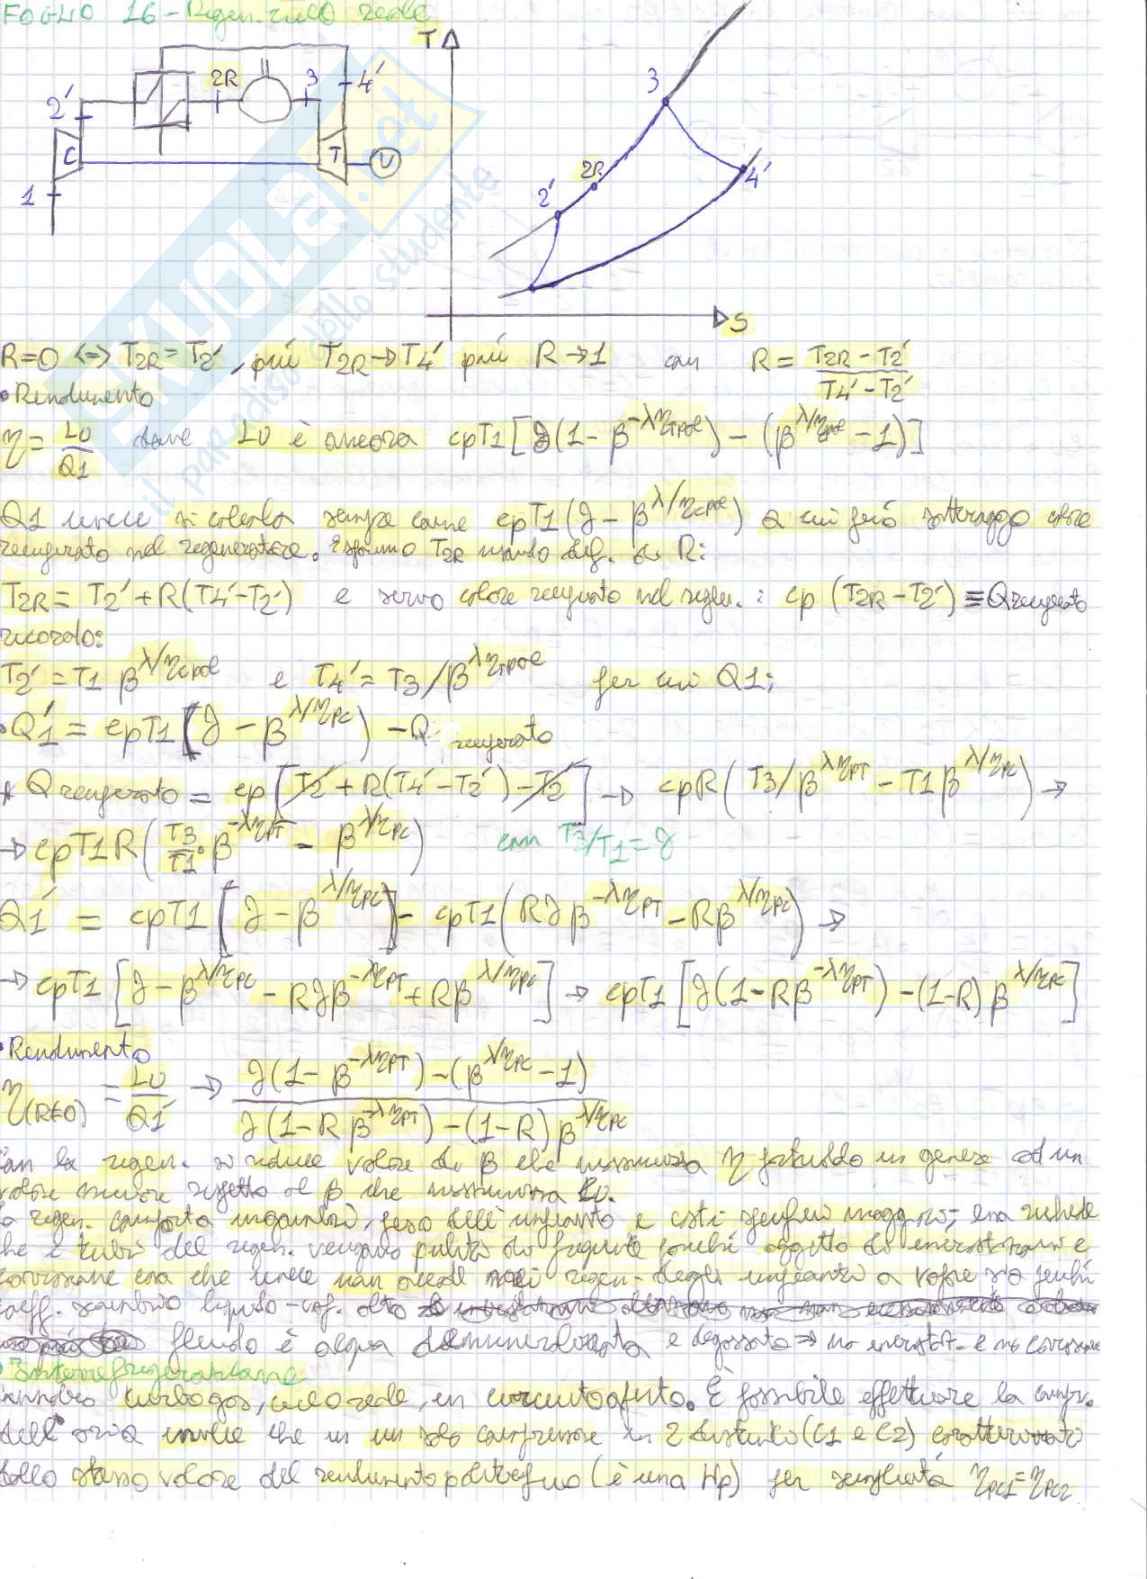 FOGLIO 16 - Rigen. ciclo reale
T
2R
3
4'
3
2'
C
T
U
2R
4'
2'
1
S
SKUOLA.net
il paradiso dello studente
R=0 <=> T2R = T2', più T2R → T4' più R → 1 con R = T2R - T2' / T4' - T2'
• Rendimento
η = Lu / Q1 dove Lu è ancora cpT1 [ϑ(1 - β^-ληTpol) - (β^λ/ηcpol - 1)]
Q1 invece si calcola sempre come cpT1 (ϑ - β^λ/ηcpol) a cui però sottraggo calore
recuperato nel rigeneratore. Esprimo T2R usando def. di R:
T2R = T2' + R(T4' - T2') e scrivo calore recuperato nel rigen.: cp (T2R - T2') ≡ Qrecuperato
ricordo:
T2' = T1 β^λ/ηcpol e T4' = T3/β^ληTpol per cui Q1:
• Q1' = cpT1 [ϑ - β^λ/ηPC) - Q recuperato
* Q recuperato = cp [T2' + R(T4' - T2') - T2'] → cpR (T3/β^ληPT - T1 β^λ/ηPC) →
→ cpT1R (T3/T1 · β^-ληPT - β^λ/ηPC) con T3/T1 = ϑ
Q1' = cpT1 [ϑ - β^λ/ηPC] - cpT1 (Rϑβ^-ληPT - Rβ^λ/ηPC) →
→ cpT1 [ϑ - β^λ/ηPC - Rϑβ^-ληPT + Rβ^λ/ηPC] → cpT1 [ϑ(1 - Rβ^-ληPT) - (1-R) β^λ/ηPC]
• Rendimento
η(R≠0) = Lu / Q1' → ϑ(1 - β^-ληPT) - (β^λ/ηPC - 1) / ϑ(1 - Rβ^-ληPT) - (1-R) β^λ/ηPC
Con la rigen. si riduce valore di β che massimizza η portandolo in genere ad un
valore minore rispetto al β che massimizza Lu.
La rigen. comporta ingombri, peso dell'impianto e costi sempre maggiori, ma richiede
che i tubi del rigen. vengano puliti di frequente perché oggetto di incrostazioni e
corrosione cosa che invece non accade nei rigen. degli impianti a vapore sia perché
coeff. scambio liquido-vap. alto
fluido è acqua demineralizzata e degasata => no incrost. e no corrosione
• Interrefrigerazione
turbogas, ciclo reale, in circuito aperto. È possibile effettuare la compr.
dell'aria invece che in un solo compressore in 2 distinti (C1 e C2) caratterizzato
dallo stesso valore del rendimento politropico (è una Hp) per semplicità ηPC1 = ηPC2